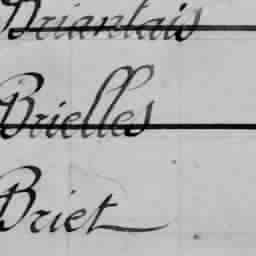 Briantais
Brielles
Briet